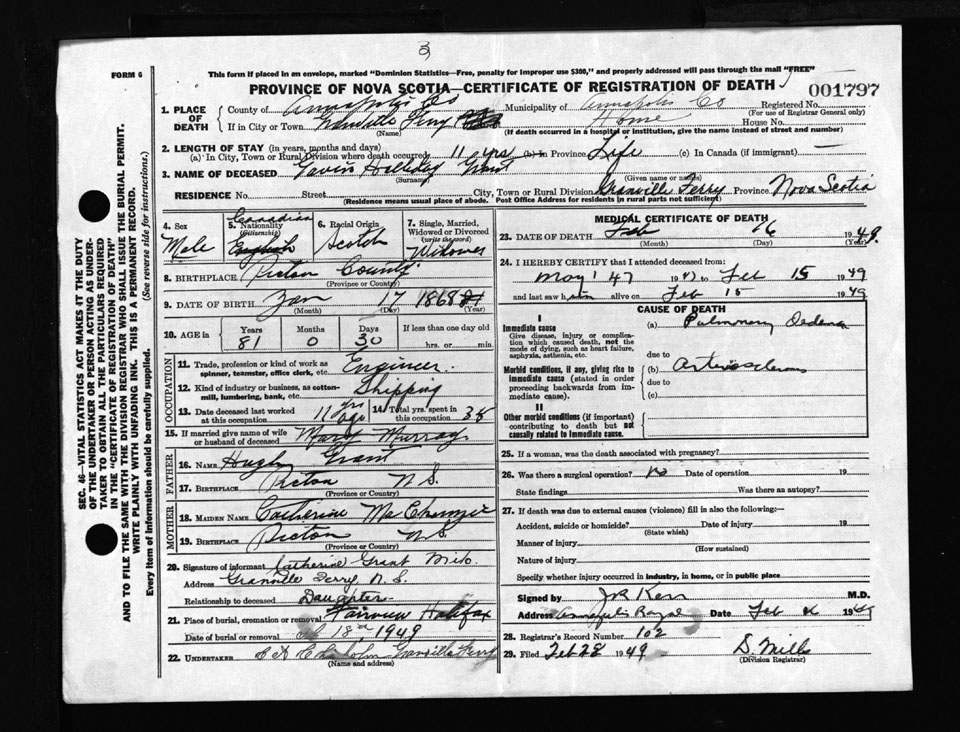 3
FORM 6
This form if placed in an envelope, marked "Dominion Statistics—Free, penalty for improper use $300," and properly addressed will pass through the mail "FREE"
PROVINCE OF NOVA SCOTIA—CERTIFICATE OF REGISTRATION OF DEATH
001797
1. PLACE OF DEATH
County of Annapolis Co Municipality of Annapolis Co Registered No.
(For use of Registrar General only)
If in City or Town Granville Ferry Home House No.
(Name) (If death occurred in a hospital or institution, give the name instead of street and number)
2. LENGTH OF STAY (in years, months and days)
(a) In City, Town or Rural Division where death occurred 11 yrs (b) In Province Life (c) In Canada (if immigrant) —
3. NAME OF DECEASED Gavin Grant
(Surname) (Given name or names)
RESIDENCE No. Street City, Town or Rural Division Granville Ferry Province Nova Scotia
(Residence means usual place of abode. Post Office Address for residents in rural parts not sufficient)
4. Sex Male
5. Nationality (Citizenship) Canadian English
6. Racial Origin Scotch
7. Single, Married, Widowed or Divorced (write the word) Widower
8. BIRTHPLACE Pictou County
(Province or Country)
9. DATE OF BIRTH Jan 17 1868
(Month) (Day) (Year)
10. AGE in Years 81 Months 0 Days 30 If less than one day hrs. or min.
OCCUPATION
11. Trade, profession or kind of work as spinner, teamster, office clerk, etc. Engineer
12. Kind of industry or business, as cotton-mill, lumbering, bank, etc. Shipping
13. Date deceased last worked at this occupation 11 yrs ago 14. Total yrs. spent in this occupation 38
15. If married give name of wife or husband of deceased Mary Murray
FATHER
16. NAME Hugh Grant
17. BIRTHPLACE Pictou N S.
(Province or Country)
MOTHER
18. MAIDEN NAME Catherine
19. BIRTHPLACE Pictou N S.
(Province or Country)
20. Signature of informant Catherine Grant
Address Granville Ferry N. S.
Relationship to deceased Daughter
21. Place of burial, cremation or removal Fairview Halifax
Date of burial or removal 18th, 1949
22. UNDERTAKER Granville Ferry
(Name and address)
MEDICAL CERTIFICATE OF DEATH
23. DATE OF DEATH Feb 16 1949
(Month) (Day) (Year)
24. I HEREBY CERTIFY that I attended deceased from:
May 1 47 to Feb 15 1949
and last saw him alive on Feb 15 1949
CAUSE OF DEATH
I
Immediate cause
Give disease, injury or complication which caused death, not the mode of dying, such as heart failure, asphyxia, asthenia, etc.
(a) Pulmonary Oedema
due to
Morbid conditions, if any, giving rise to immediate cause (stated in order proceeding backwards from immediate cause).
(b) Arteriosclerosis
due to
(c)
II
Other morbid conditions (if important) contributing to death but not causally related to immediate cause.
25. If a woman, was the death associated with pregnancy?
26. Was there a surgical operation? No Date of operation 19
State findings Was there an autopsy?
27. If death was due to external causes (violence) fill in also the following:—
Accident, suicide or homicide? Date of injury 19
(State which)
Manner of injury
(How sustained)
Nature of injury
Specify whether injury occurred in industry, in home, or in public place
Signed by J R Kerr M.D.
Address Annapolis Royal Date Feb 1949
28. Registrar's Record Number 102
29. Filed Feb 28 1949 D. Mills
(Division Registrar)
SEC. 46—VITAL STATISTICS ACT MAKES IT THE DUTY OF THE UNDERTAKER OR PERSON ACTING AS UNDERTAKER TO OBTAIN ALL THE PARTICULARS REQUIRED IN THE "CERTIFICATE OF REGISTRATION OF DEATH" AND TO FILE THE SAME WITH THE DIVISION REGISTRAR WHO SHALL ISSUE THE BURIAL PERMIT.
WRITE PLAINLY WITH UNFADING INK. THIS IS A PERMANENT RECORD.
Every item of Information should be carefully supplied. (See reverse side for instructions.)